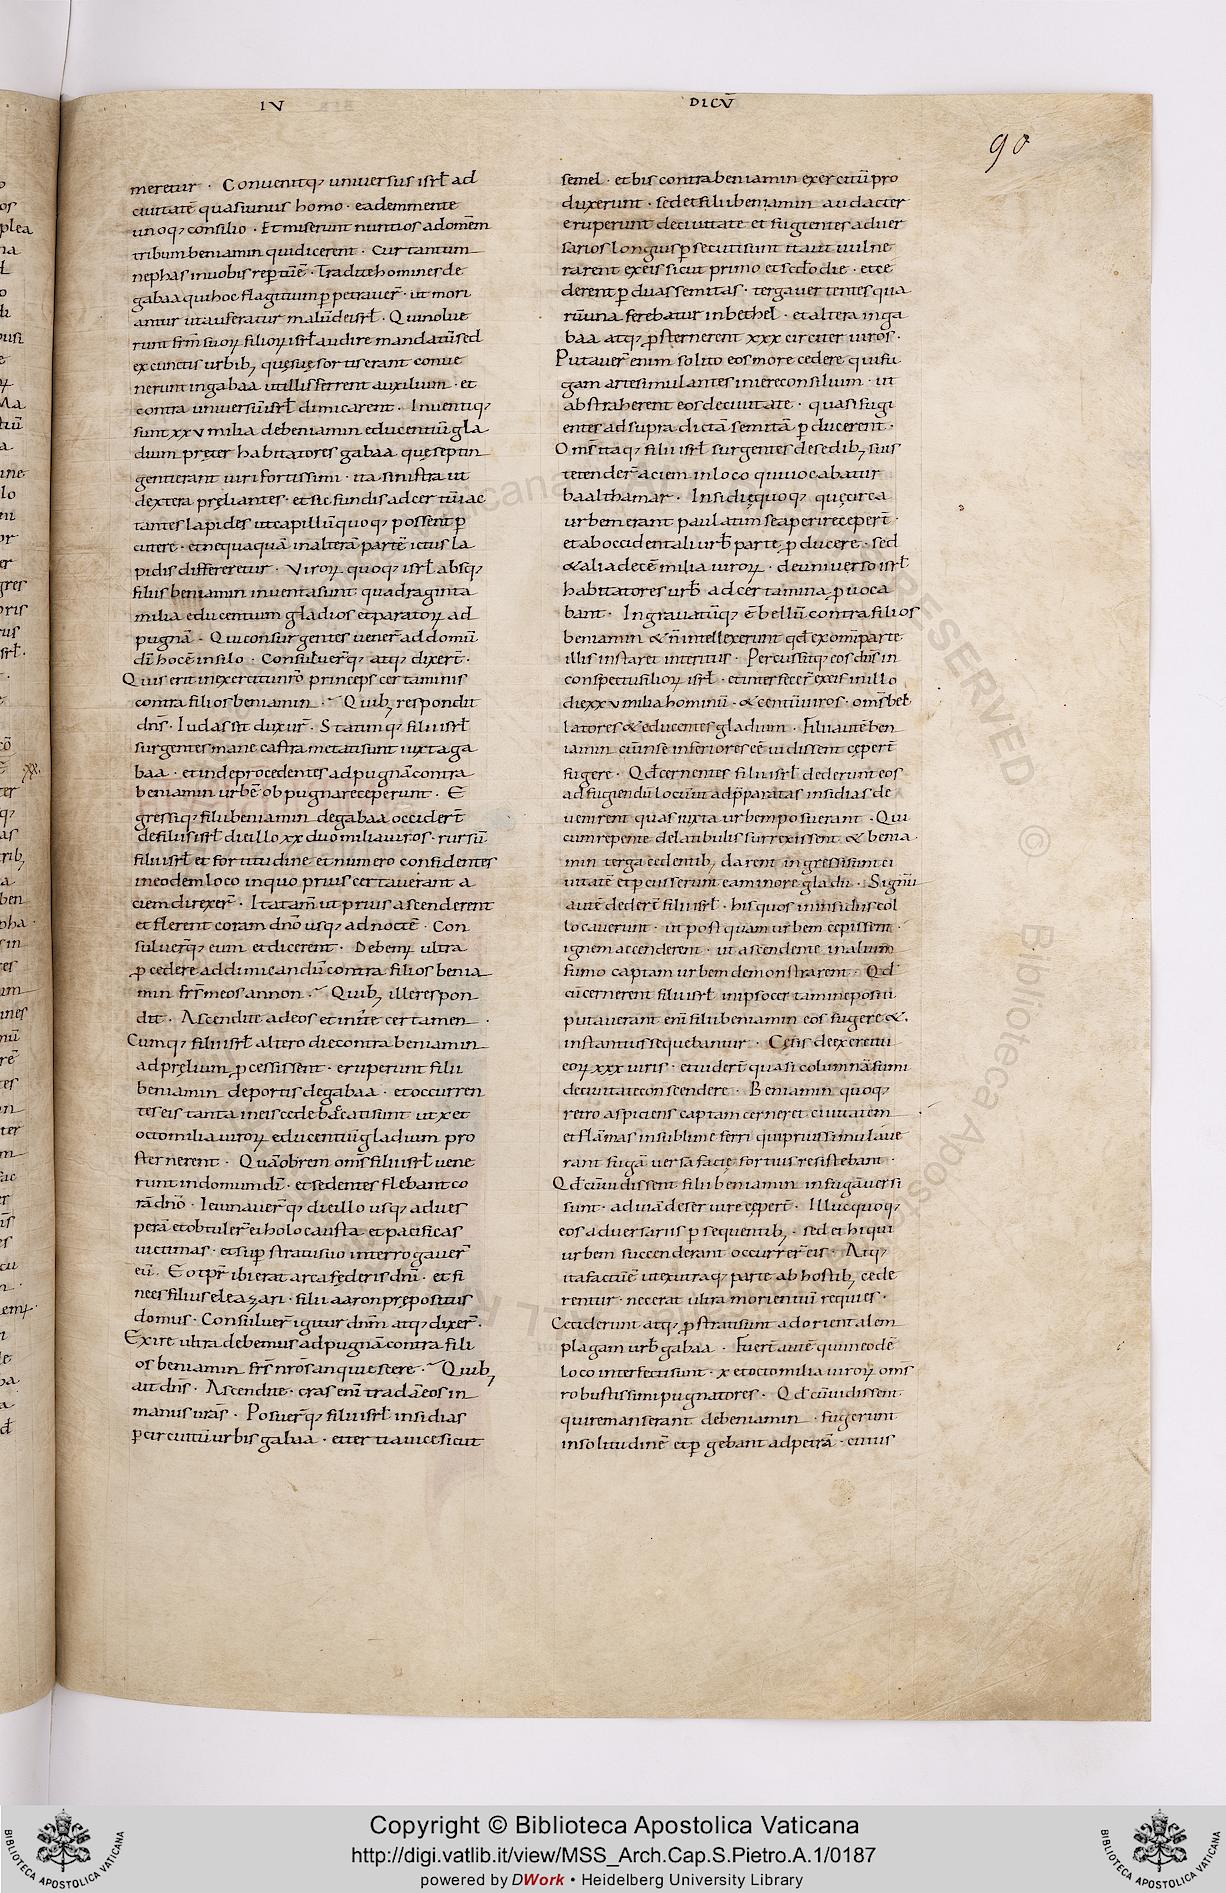 IV
DICV̄
90
meretur · Conuenitq; uniuersus isrł ad
ciuitatē quasiunus homo · eademmente
unoq; consilio · Et miserunt nuntios adomēm
tribum beniamin quidicerent · Cur tantum
nephas inuobis rep̄tūē · Tradite homines de
gabaa quihoc flagitium p̄petrauer̄ · ut mori
antur utauferatur malūdeisrł · Quinolue
runt frm̄ suoꝝ filioꝝ isrł audire mandatū sed
excunctis urbib; quęsuę sortiserant conue
nerunt ingabaa utillisferrent auxilium · et
contra uniuersūisrł dimicarent · Inuentiq;
sunt xxv milia debeniamin educentiū gla
dium pręter habitatores gabaa quęseptin
gentierant uiri fortissimi · ita sinistra ut
dextera pręliantes · et sic fundis adcertū iac
tantes lapides utcapillūquoq; possent p̄
cutere · etnequaquā inalterā partē ictus la
pidis differeretur · Viroꝝ quoq; isrł absq;
filiis beniamin inuentasunt quadraginta
milia educentium gladios etparatoꝝ ad
pugnā · Qui consurgentes uener̄ ad domū
dī hoc ēin silo · Consuluer̄q; atq; dixer̄t ·
Quis erit inexercitunr̄o princeps certaminis
contra filios beniamin · Quib; respondit
dn̄s · Iudas sit dux ur̄ · Statimq; filii isrł
surgentes mane castra metatisunt iuxta ga
baa · et inde procedentes adpugnā contra
beniamin urbē obpugnareceperunt · E
gressiq; filii beniamin degabaa occider̄t
defiliis isrł die illo xx duo milia uiros · rursū
filii isrł et fortitudine et numero confidentes
ineodem loco inquo prius certauerant a
ciem direxer̄ · Ita tam̄ ut prius ascenderent
et flerent coram dn̄o usq; ad noctē · Con
suluer̄q; eum et dicerent · Debemꝰ ultra
procedere addimicandū contra filios benia
min frs̄ meos annon · Quib; illerespon
dit · Ascendite adeos et inite certamen ·
Cumq; filii isrł altero die contra beniamin
adpręlium processissent · eruperunt filii
beniamin deportis degabaa · etoccurren
tes eis tanta ineis cede bacatisunt ut x et
octo milia uiroꝝ educentiū gladium pro
sternerent · Quāobrem oms̄ filii isrł uene
runt indomum dī · et sedentes flebant co
rā dn̄o · Ieiunauer̄q; die illo usq; adues
perā etobtuler̄ ei holocausta et pacificas
uictimas · et sup̄ statusuo interrogauer̄
eū · Eo tp̄r ibi erat arca fęderis dn̄i · et fi
nees filius eleazari · filii aaron prępositus
domus · Consuluer̄ igitur dnm̄ atq; dixer̄ ·
Exire ultra debemus adpugnā contra fili
os beniamin frs̄ nr̄os anquiescere · Quib;
ait dn̄s · Ascendite · cras enī tradā eos in
manus ur̄as · Posuer̄q; filii isrł insidias
p̄circuitū urbis gabaa · etter tia uicesicut
semel · et bis contra beniamin exercitū pro
duxerunt · sed et filii beniamin audacter
eruperunt deciuitate et fugientes aduer
sarios longius p̄secutisunt ita ut uulne
rarent exeis sicut primo et scd̄o die · et ce
derent p̄ duas semitas · terga uertentes qua
rūuna ferebatur inbethel · et altera inga
baa atq; prosternerent xxx circiter uiros ·
Putauer̄ enim solito eos more cedere qui fu
gam arte simulantes iniere consilium · ut
abstraherent eos deciuitate · quasi fugi
entes ad supra dictā semitā p̄ducerent ·
Oms̄ itaq; filii isrł surgentes desedib; suis
tetender̄ aciem in loco qui uocabatur
baalthamar · Insidięquoq; quęcirca
urbem erant paulatim seaperirecepert̄ ·
et aboccidentali urb̄ parte procedere · sed
& alia decē milia uiroꝝ · deuniuerso isrł
habitatores urb̄ adcertamina prouoca
bant · Ingrauatūq; ē bellū contra filios
beniamin & n̄ intellexerunt qd̄ ex omīparte
illis instaret interitus · Percussitq; eos dn̄s in
conspectu filioꝝ isrł · et interfecer̄ exeis in illo
die xxv milia hominū · & centū uiros · oms̄ bel
latores & educentes gladium · Filii autē ben
iamin cū inse inferiores eē uidissent cępert̄
fugere · Qd̄ cernentes filii isrł dederunt eos
adfugiendū locū ut adp̄paratas insidias de
uenirent quas iuxta urbem posuerant · Qui
cum repente delatibulis surrexissent & benia
min terga cedentib; darent ingressisunt ci
uitatē et p̄cusserunt eam in ore gladii · Signū
autē dedert̄ filii isrł · his quos ininsidiis col
locauerunt · ut postquam urbem cepissent ·
ignem accenderent · ut ascendente inaltum
fumo captam urbem demonstrarent · Qd̄
cū cernerent filii isrł inipso certamine positi
putauerant enī filii beniamin eos fugere & ·
instantius sequebantur · Cęsis deexercitu
eoꝝ xxx uiris · et uidert̄ quasi columnā fumi
deciuitate conscendere · Beniamin quoq;
retro aspiciens captam cerneret ciuitatem
et flāmas insublime ferri quiprius simulaue
rant fugā uersa facię fortius resistebant ·
Qd̄ cū uidissent filii beniamin infugā uersi
sunt · aduiā deserti ire cępert̄ · Illuc quoq;
eos aduersariis p̄sequentib; · sed et hi qui
urbem succenderant occurrer̄ eis · Atq;
ita factū ē ut exutraq; parte ab hostib; cede
rentur · nec erat ulla morientiū requies ·
Ceciderunt atq; prostratisunt ad orientalem
plagam urb̄ gabaa · Fuert̄ autē quineodē
loco interfectisunt · x et octo milia uiroꝝ oms̄
robustissimi pugnatores · Qd̄ cū uidissent
quiremanserant debeniamin · fugerunt
insolitudinē et p̄gebant adpetrā · cuius
Copyright © Biblioteca Apostolica Vaticana
http://digi.vatlib.it/view/MSS_Arch.Cap.S.Pietro.A.1/0187
powered by DWork • Heidelberg University Library